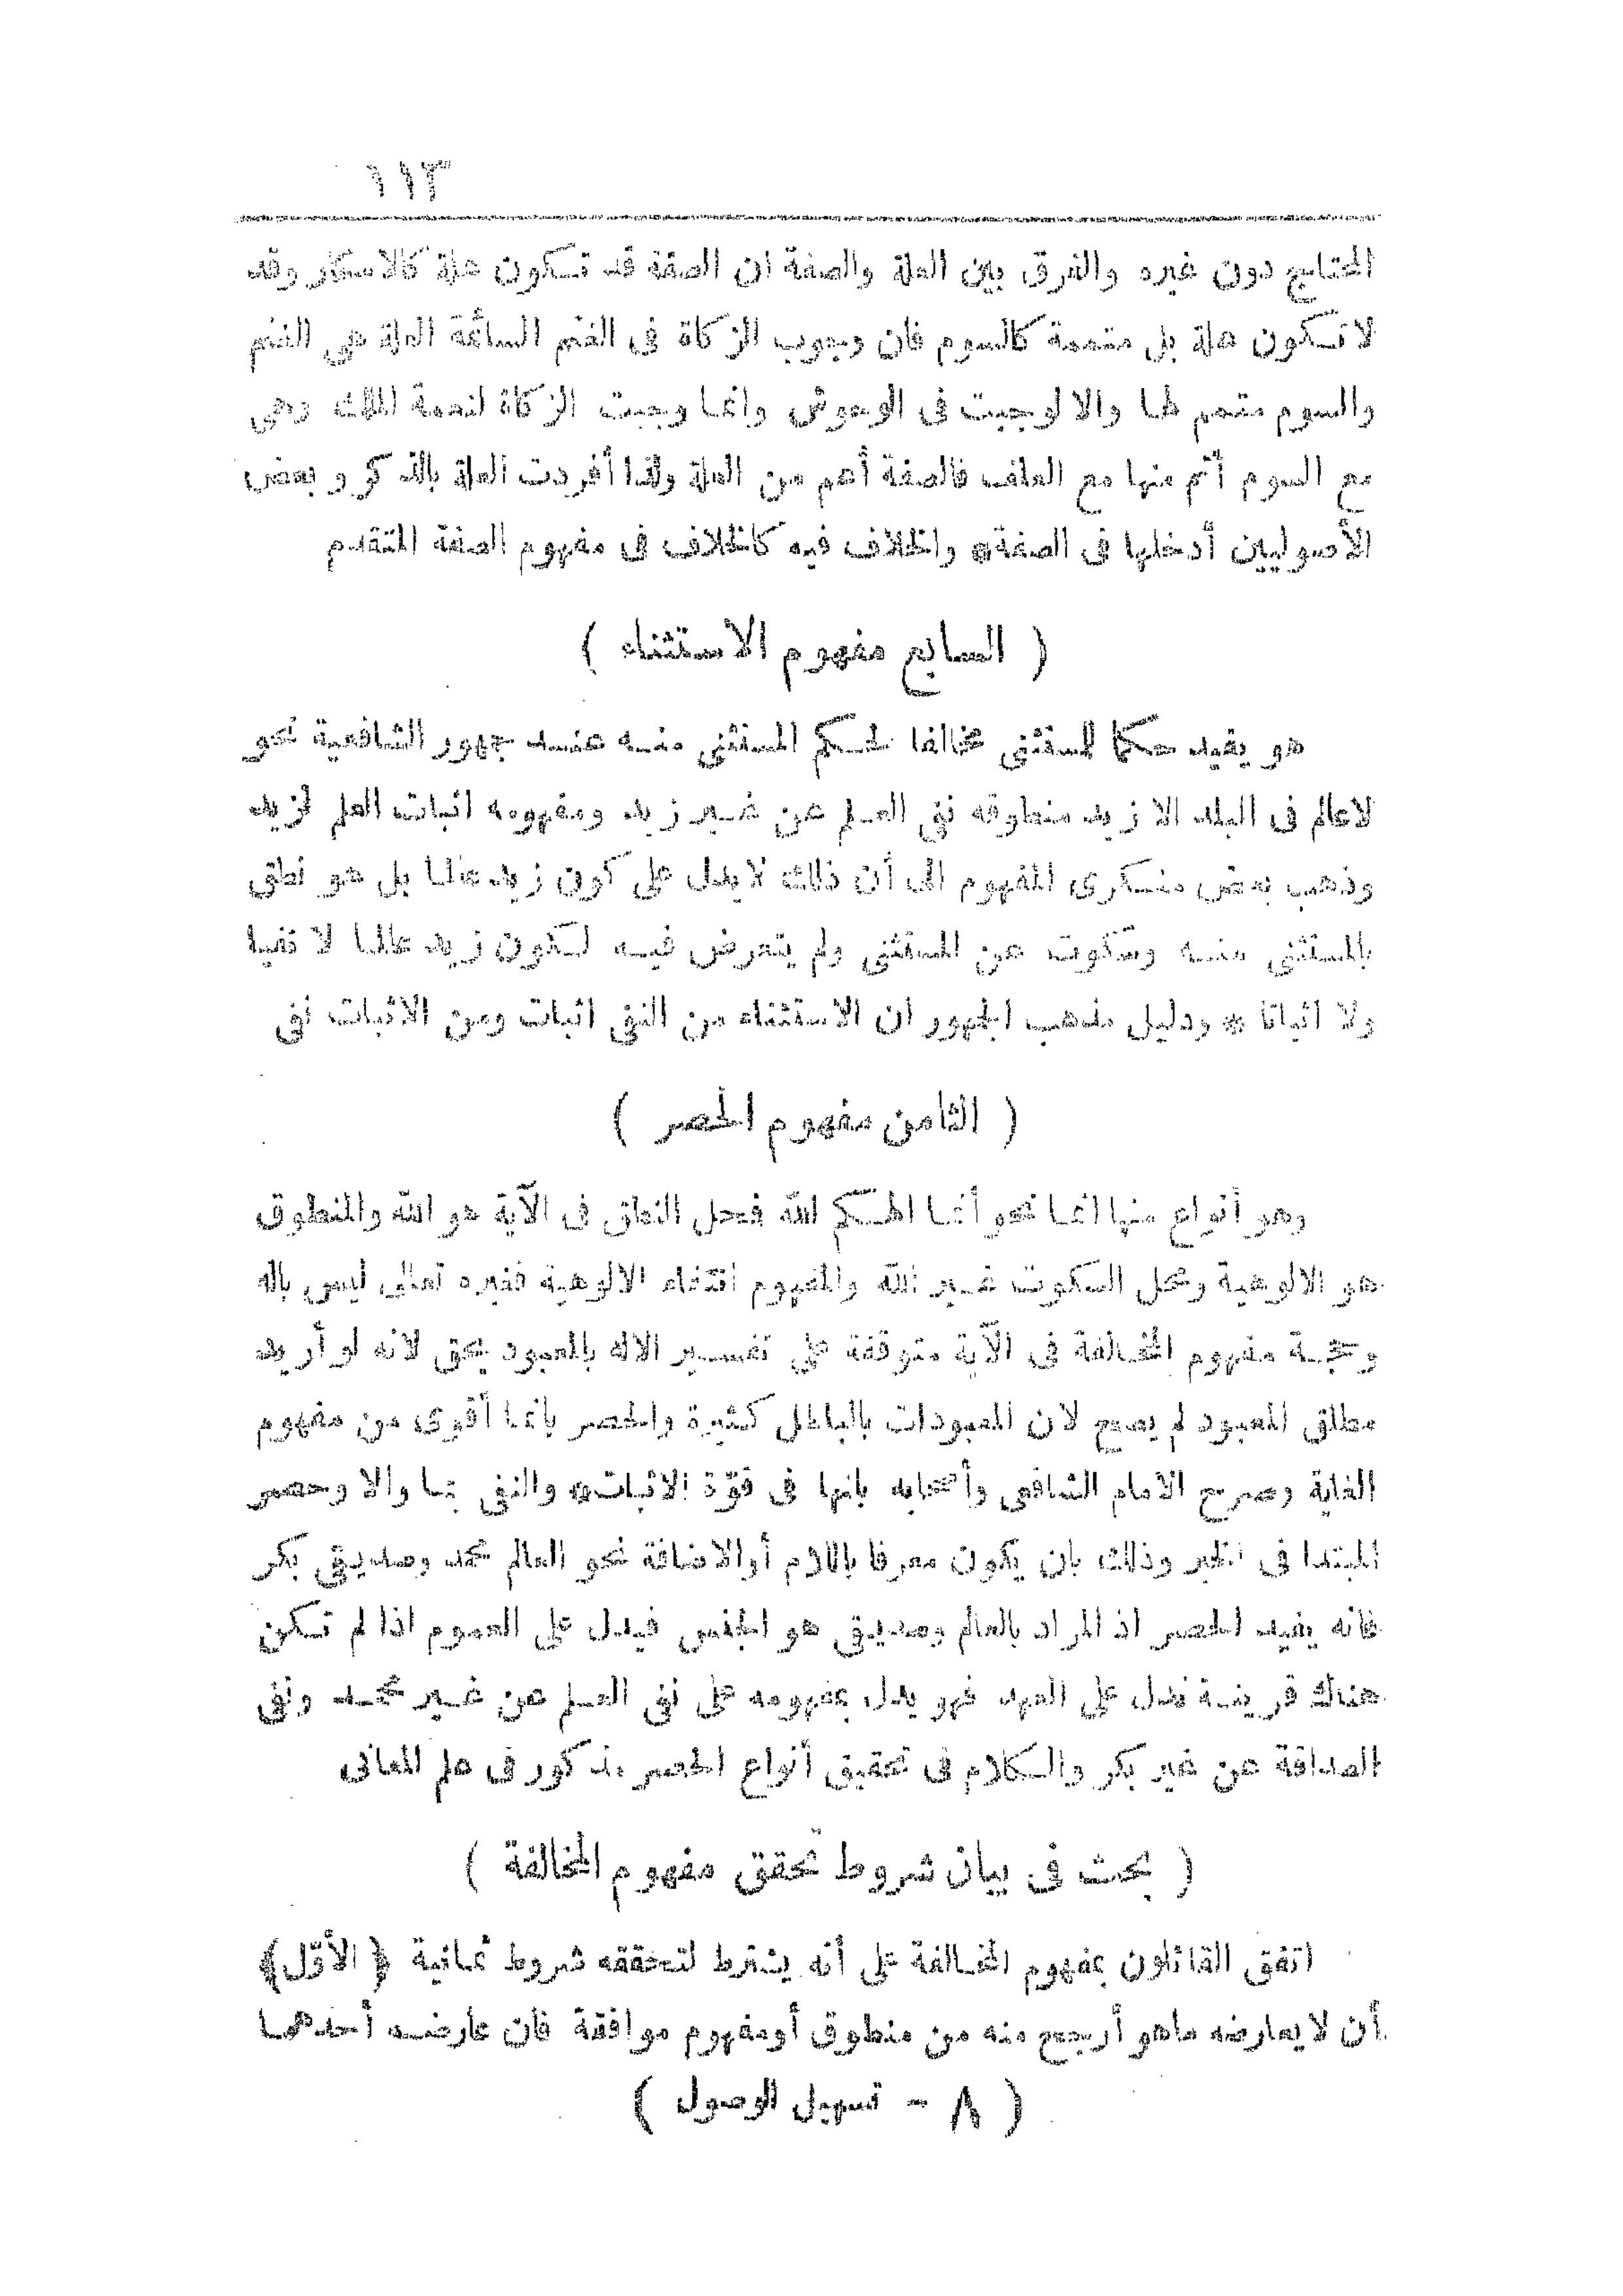 ١١٣
المحتاج دون غيره والفرق بين العلة والصفة ان الصفة قد تكون علة كالاسكار وقد
لا تكون علة بل متممة كالسوم فان وجوب الزكاة فى الغنم السائمة العلة هى الغنم
والسوم متمم لها والا لوجبت فى الوحوش وانما وجبت الزكاة لنعمة الملك وهى
مع السوم أتم منها مع العلف فالصفة أعم من العلة ولذا أفردت العلة بالذكر وبعض
الأصوليين أدخلها فى الصفة * والخلاف فيه كالخلاف فى مفهوم الصفة المتقدم
( السابع مفهوم الاستثناء )
هو يفيد حكما للمستثنى مخالفا لحكم المستثنى منه عند جمهور الشافعية نحو
لا عالم فى البلد الا زيد منطوقه نفى العلم عن غير زيد ومفهومه اثبات العلم لزيد
وذهب بعض منكرى المفهوم الى أن ذلك لا يدل على كون زيد عالما بل هو نطق
بالمستثنى منه وسكوت عن المستثنى ولم يتعرض فيه لكون زيد عالما لا نفيا
ولا اثباتا * ودليل مذهب الجمهور ان الاستثناء من النفى اثبات ومن الاثبات نفى
( الثامن مفهوم الحصر )
وهو أنواع منها انما نحو أنما الهكم الله فمحل النطق فى الآية هو الله والمنطوق
هو الالوهية ومحل السكوت غير الله والمفهوم انتفاء الالوهية فغيره تعالى ليس باله
وحجة مفهوم المخالفة فى الآية متوقفة على تفسير الاله بالمعبود بحق لانه لو أريد
مطلق المعبود لم يصح لان المعبودات بالباطل كثيرة والحصر بانما أقوى من مفهوم
الغاية وصرح الامام الشافعى وأصحابه بانها فى قوّة الاثبات * والنفى بما والا وحصر
المبتدا فى الخبر وذلك بان يكون معرفا باللام أوالاضافة نحو العالم محمد وصديقى بكر
فانه يفيد الحصر اذ المراد بالعالم وصديقى هو الجنس فيدل على العموم اذا لم تكن
هناك قرينة تدل على العهد فهو يدل بمفهومه على نفى العلم عن غير محمد ونفى
الصداقة عن غير بكر والكلام فى تحقيق أنواع الحصر مذكور فى علم المعانى
( بحث فى بيان شروط تحقق مفهوم المخالفة )
اتفق القائلون بمفهوم المخالفة على أنه يشترط لتحققه شروط ثمانية ﴿ الأوّل ﴾
أن لا يعارضه ماهو أرجح منه من منطوق أومفهوم موافقة فان عارضه أحدهما
( ٨ - تسهيل الوصول )